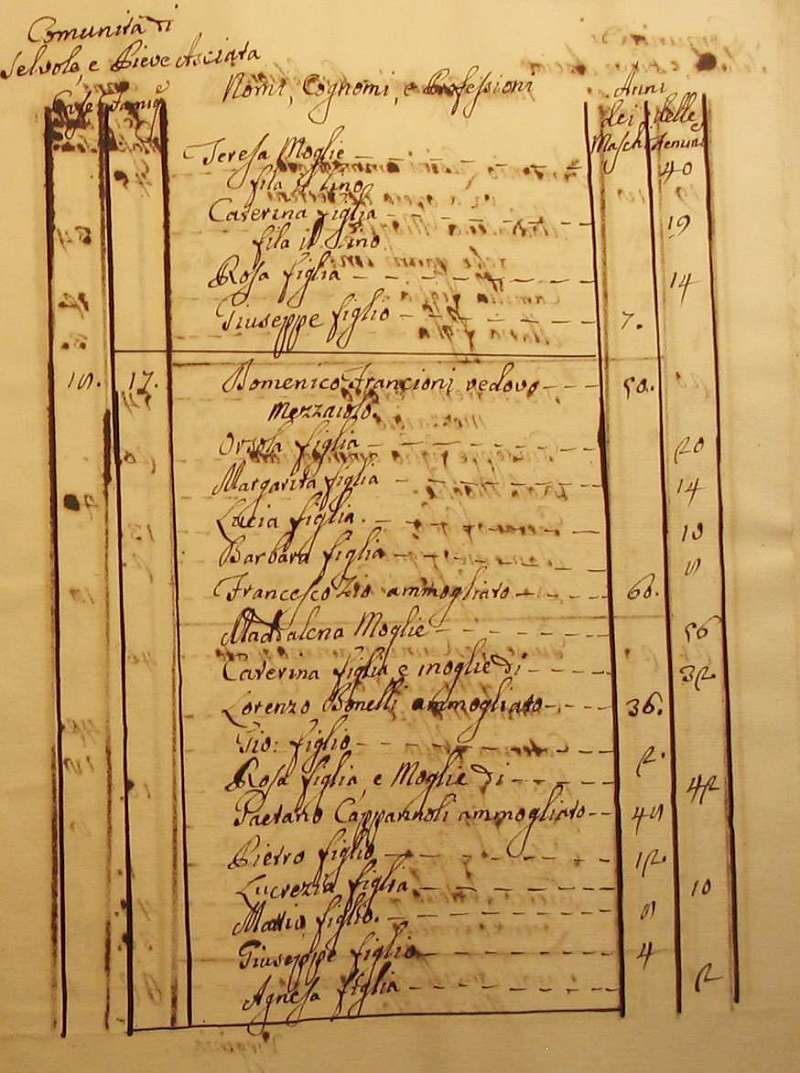 Comunità di
Selvole, e Pieve Asciata
Nomi, Cognomi, e Professioni
Anni
dei delle
Case Famig
Masch Femin
Teresa Moglie 40
fila il Lino
Caterina figlia 19
fila il Lino
Rosa figlia 14
Giuseppe figlio 7.
17. Domenico Francioni vedovo 50.
Mezzaiolo
Orsola figlia 20
Margarita figlia 14
Lucia figlia 10
Barbara figlia
Francesco Zio ammogliato 60.
Maddalena Moglie 56
Caterina figlia e moglie di 32
Lorenzo Bonelli ammogliato 36.
Gio: figlio 2.
Rosa figlia, e Moglie di 42
Gaetano Cappannoli ammogliato 45
Pietro figlio 12.
Lucrezia figlia 10
Mattio figlio. 5
Giuseppe figlio 4
Agnesa figlia 2